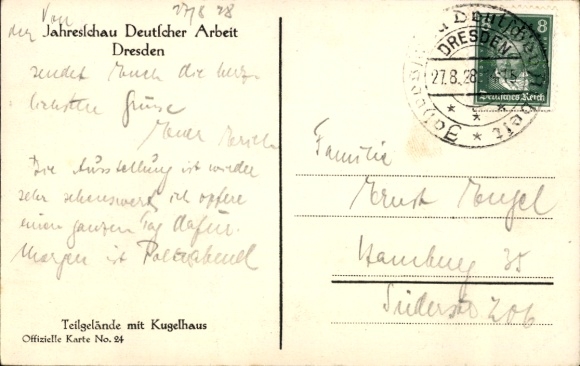 27/8 28
Von
der Jahresſchau Deutſcher Arbeit
Dresden
sendet Euch die herz-
lichsten Grüsse
Euer Erich
Die Ausstellung ist wieder
sehr sehenswert, ich opfere
einen ganzen Tag dafür.
Morgen ist Polterabend
Teilgelände mit Kugelhaus
Offizielle Karte No. 24
8
Deutſches Reich
DRESDEN
27.8.28
Familie
Ernst Engel
Hamburg 35
Süderstr 206